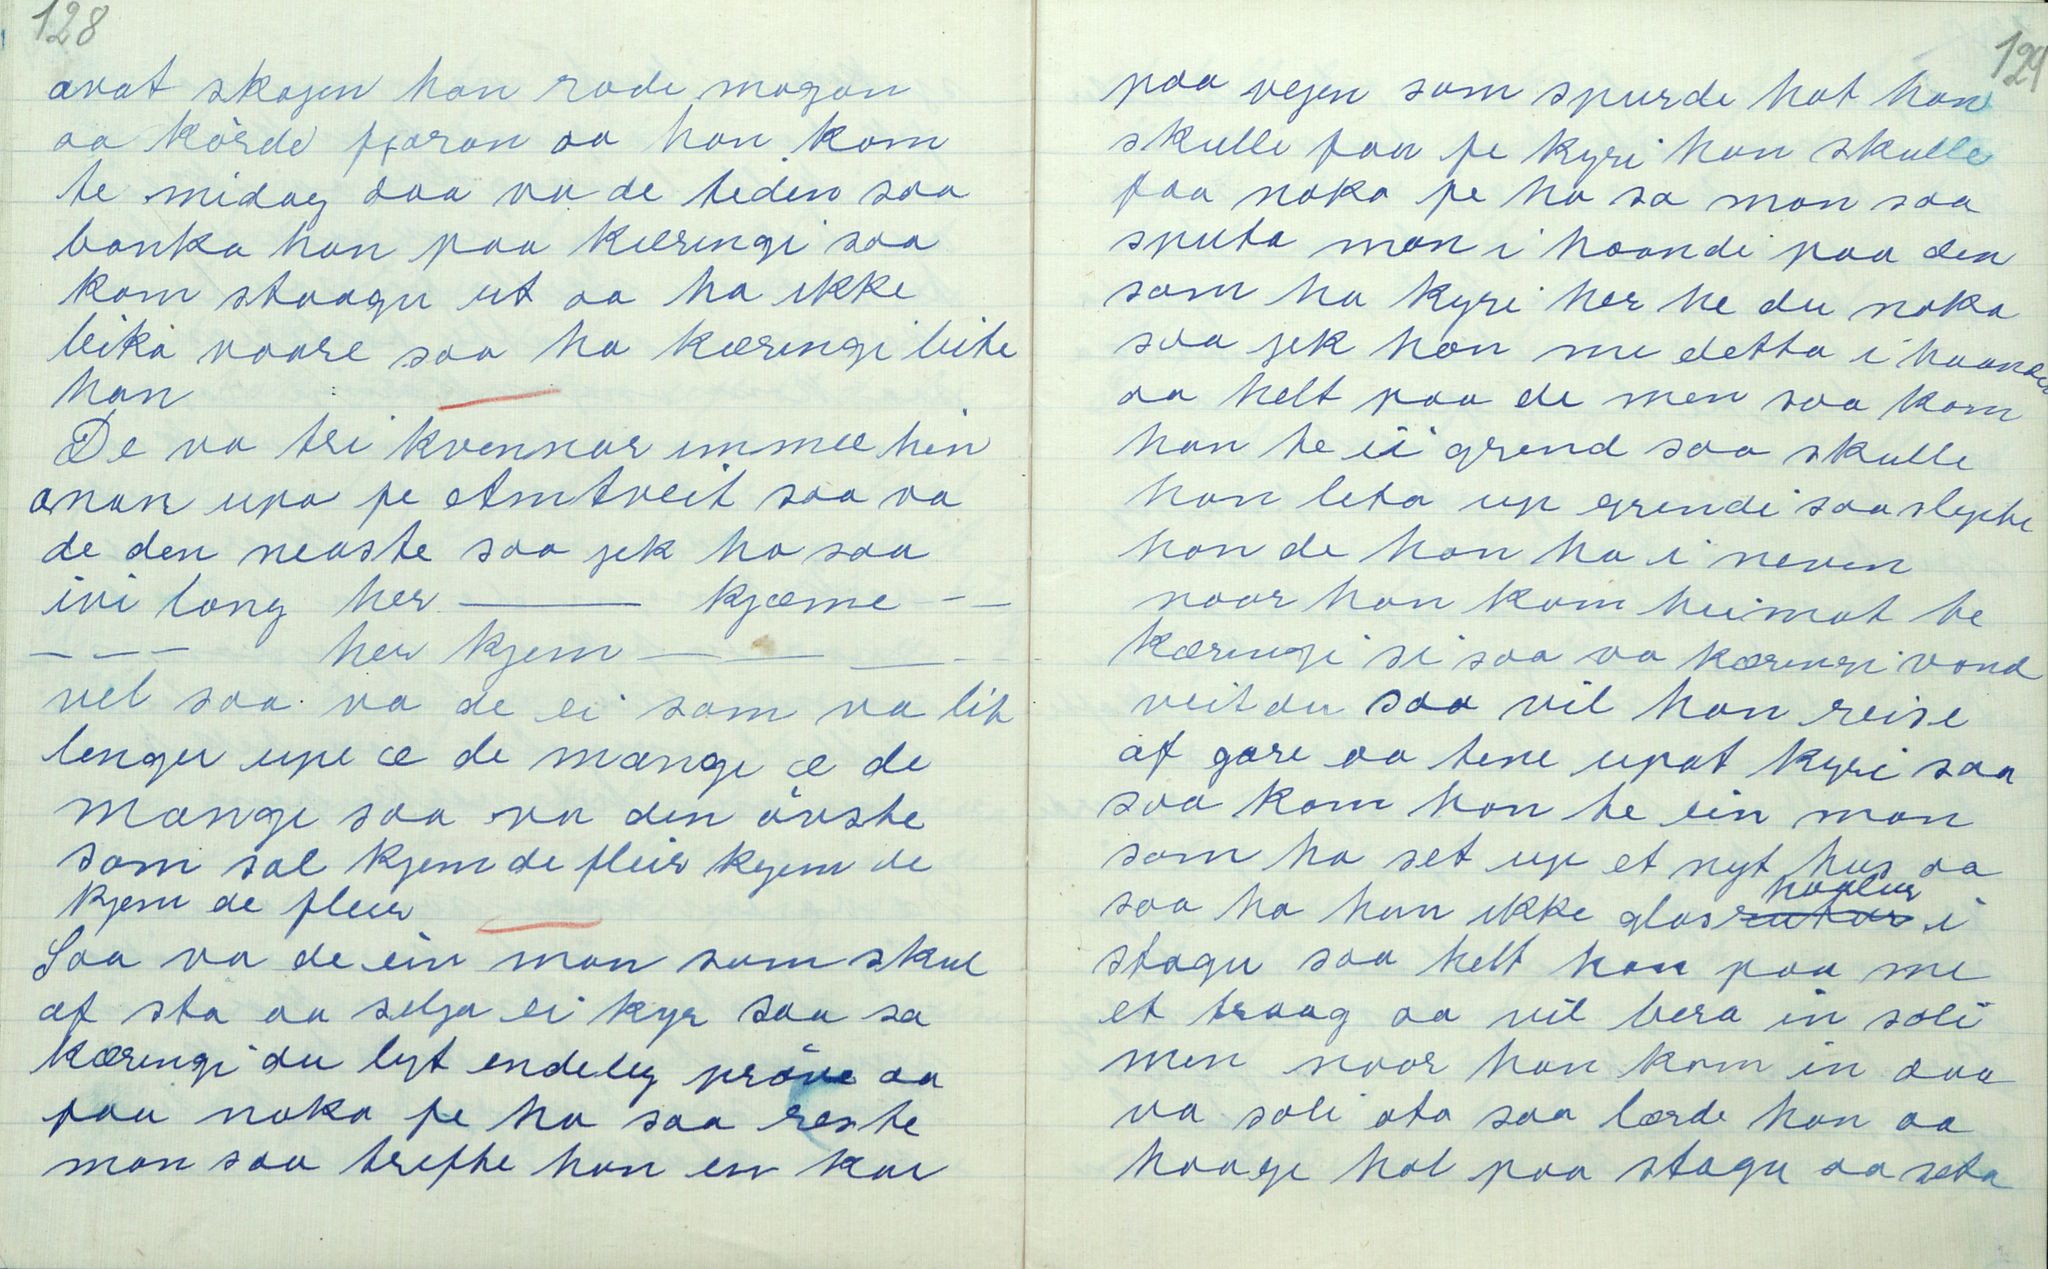 128
avat skogen han rode magan
aa körde fjøran aa han kom
te midag daa va de teden saa
banka han paa kæringi saa
kom staagu ut aa ha ikke
leika vaare saa ha kæringi leite
han
De va tri kvennar immæ hin
anan upa pe Amtveit saa va
de den neaste saa jek ho saa
ivi long her ——— kjæme — —
— — — her kjem — — — —
vel saa va de ei som va lit
lenger upe æ de mange æ de
mange saa va den övste
som sal kjem de fleir kjem de
kjem de fleir
Saa va de ein man som skul
af sta aa selja ei kyr saa sa
kæringi du lyt endeleg pröve aa
faa noko fe ho saa reste
man saa trefte han en kar
129
paa vejen som spurde hot han
skulle faa fe kyri han skulle
faa noko fe ho sa man saa
sputa man i haandi paa den
som ha kyri her he du noko
saa jek han me detta i haanden
aa helt paa de men saa kom
han te ei grend saa skulle
han leta up grendi saa slepte
han de han ha i neven
naar han kom heimat te
kæringi si saa va kæringi vond
veit du saa vil han reise
af gare aa tene upat kyri saa
saa kom han te ein man
som ha set up et nyt hus aa
saa ha han ikke glasrutur haalur i
stogu saa helt han paa me
et traag aa vil bera in soli
men naar han kom in daa
va soli ota saa lærde han aa
haage hol paa stogu aa seta